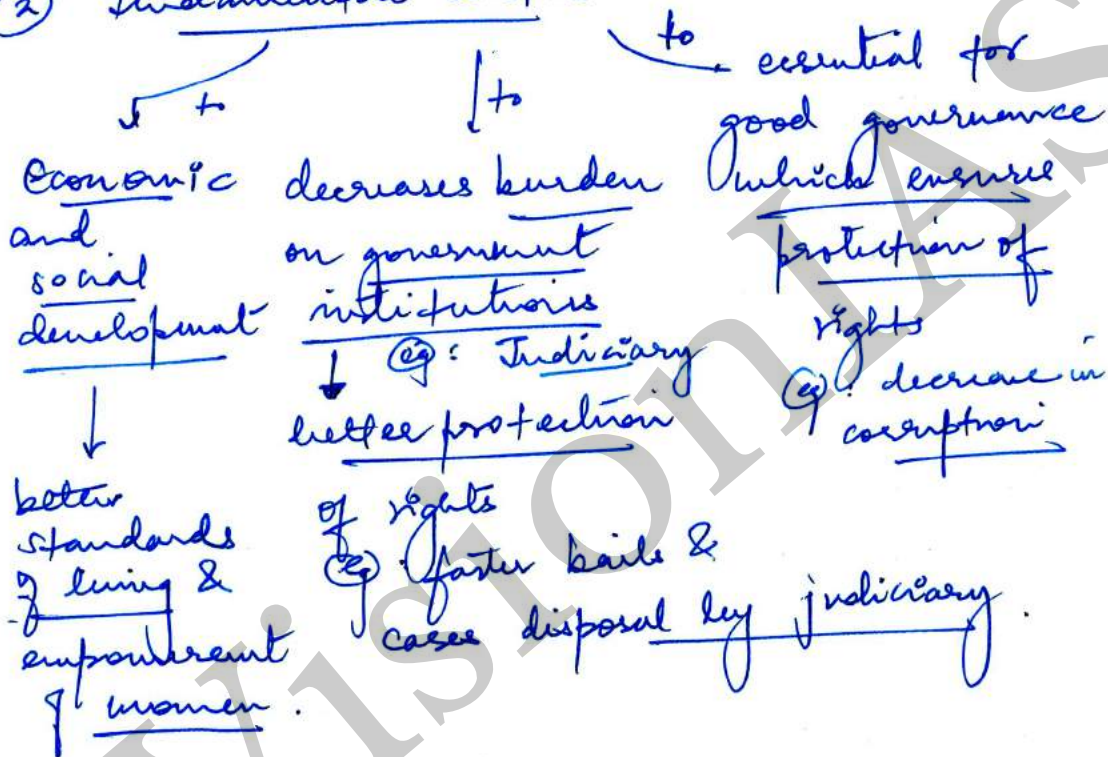 2)
to
to
to
Economic
and
social
development
better
standards
of living &
empowerment
of women.
decreases burden
on government
institutions
eg: Judiciary
better protection
of rights
eg: faster bails &
cases disposal by judiciary.
essential for
good governance
which ensures
protection of
rights
eg: decrease in
corruption
VisionIAS